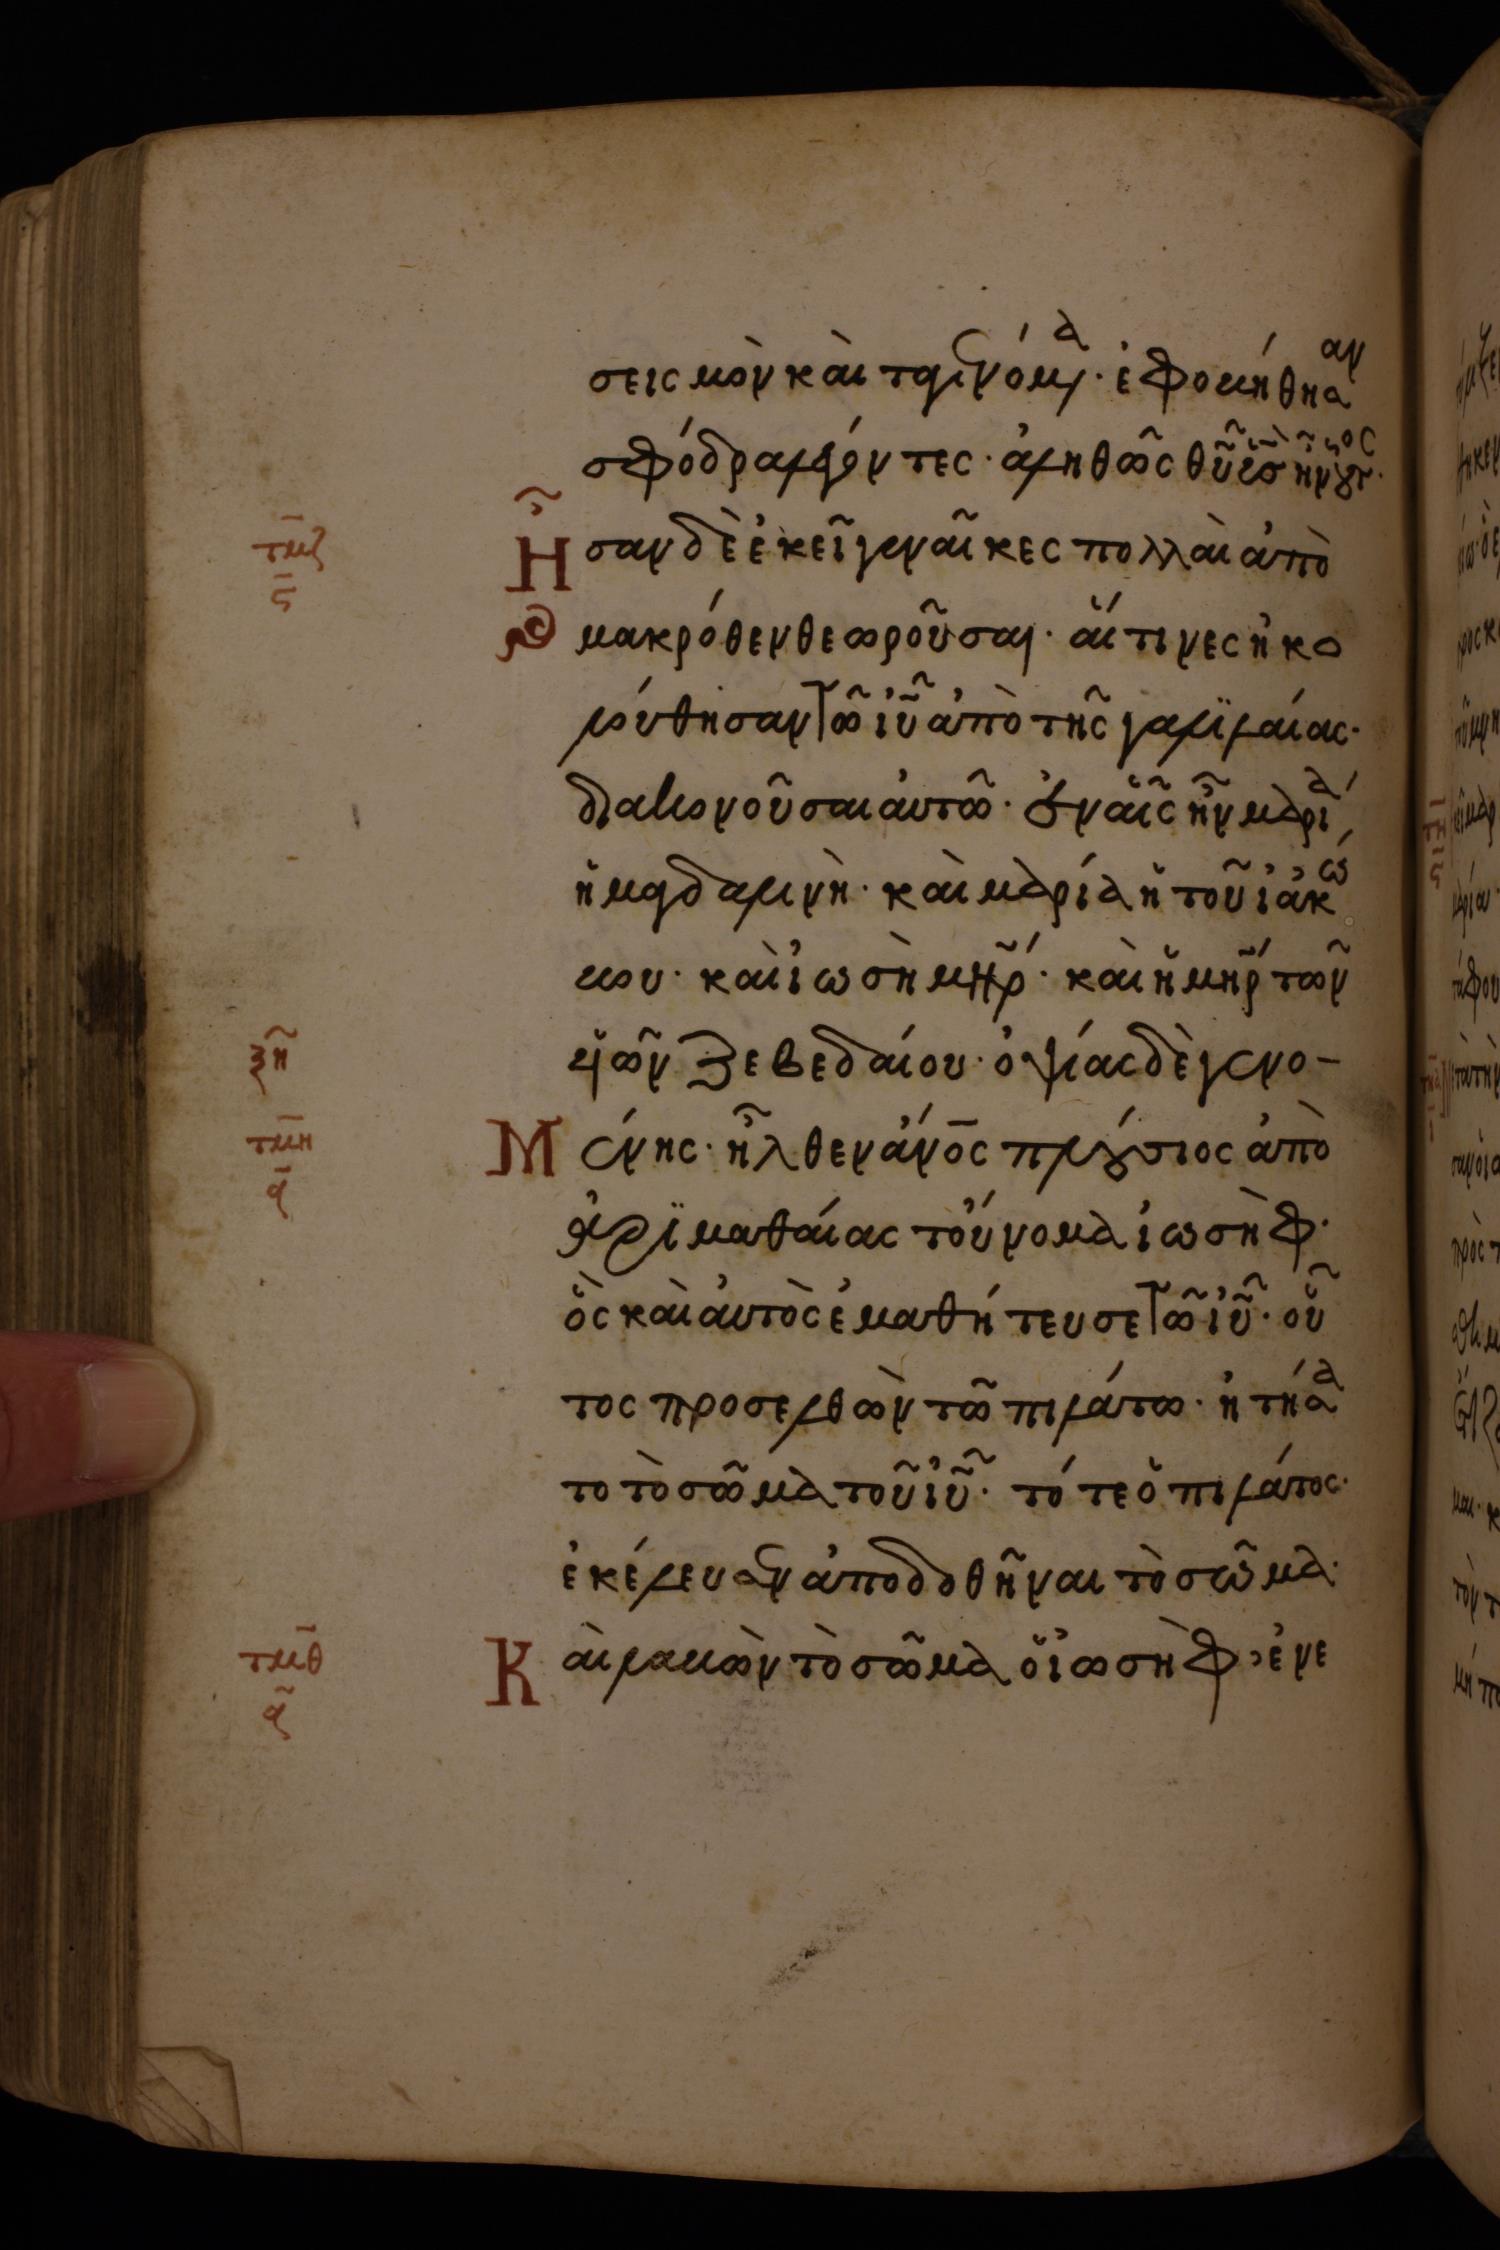 σεισμὸν καὶ τὰ γενόμενα· ἐφοβήθησαν
σφόδρα λέγοντες· ἀληθῶς θῦ υἱὸς ἦν οὗτος·
τμζ Ἦσαν δὲ ἐκεῖ γυναῖκες πολλαὶ ἀπὸ
ϛ μακρόθεν θεωροῦσαι· αἵτινες ἠκο
λούθησαν τῶ ἰῦ ἀπὸ τῆς γαλϊλαίας·
διακονοῦσαι αὐτῶ· ἐν αἷς ἦν μαρία
ἡ μαγδαλινὴ· καὶ μαρία ἡ τοῦ ἰακώ
βου· καὶ ἰωσὴ μηρ· καὶ ἡ μηρ τῶν
ξη υἱῶν ζεβεδαίου· ὀψίας δὲ γενο-
τμη Μένης· ἦλθεν ἀνος πλούσιος ἀπὸ
α ἀριμαθαίας τοὔνομα ἰωσὴφ·
ὃς καὶ αὐτὸς ἐμαθήτευσε τῶ ἰῦ· οὗ
τος προσελθὼν τῶ πιλάτω· ἠτήσα
το τὸ σῶμα τοῦ ἰῦ· τότε ὁ πιλάτος·
ἐκέλευσεν ἀποδοθῆναι τὸ σῶμα·
τμθ Καὶ λαβὼν τὸ σῶμα ὁ ἰωσὴφ, ἐνε
α